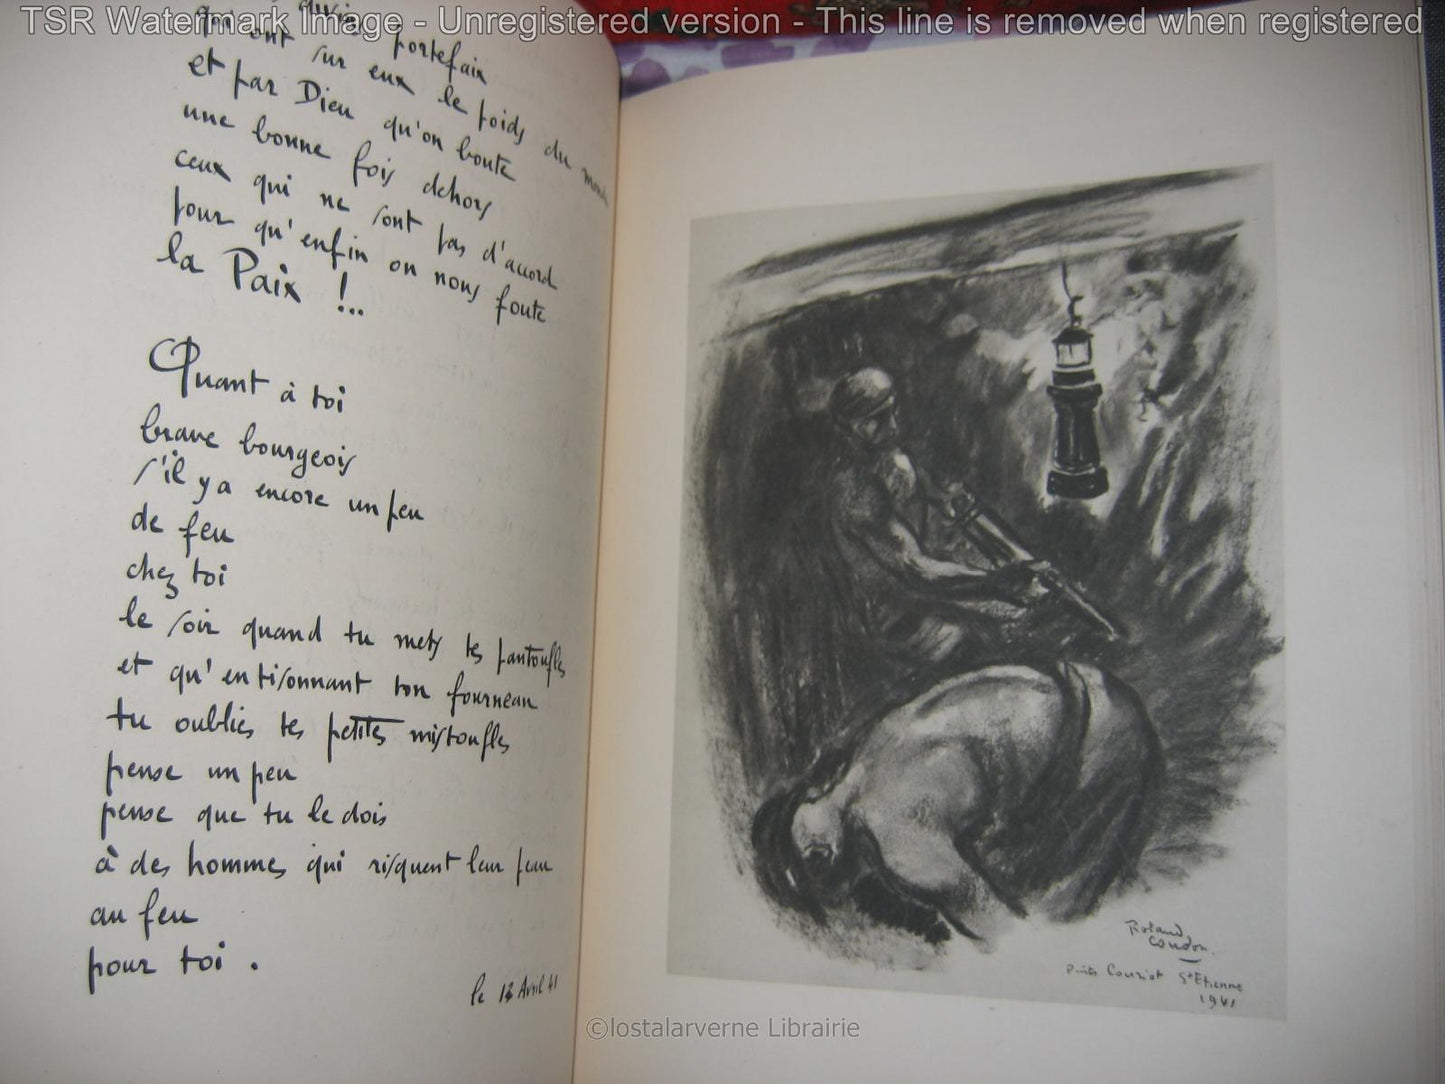 TSR Watermark Image - Unregistered version - This line is removed when registered
portefaix
qui ont sur eux le poids du monde
et par Dieu qu'on boute
une bonne fois dehors
ceux qui ne sont pas d'accord
pour qu'enfin on nous foute
la Paix !..
Quant à toi
brave bourgeois
s'il y a encore un peu
de feu
chez toi
le soir quand tu mets tes pantoufles
et qu'en tisonnant ton fourneau
tu oublies tes petites mistoufles
pense un peu
pense que tu le dois
à des hommes qui risquent leur peau
au feu
pour toi .
le 13 Avril 41
Roland
Coudon.
Puits Couriot St Etienne
1941
©lostalarverne Librairie